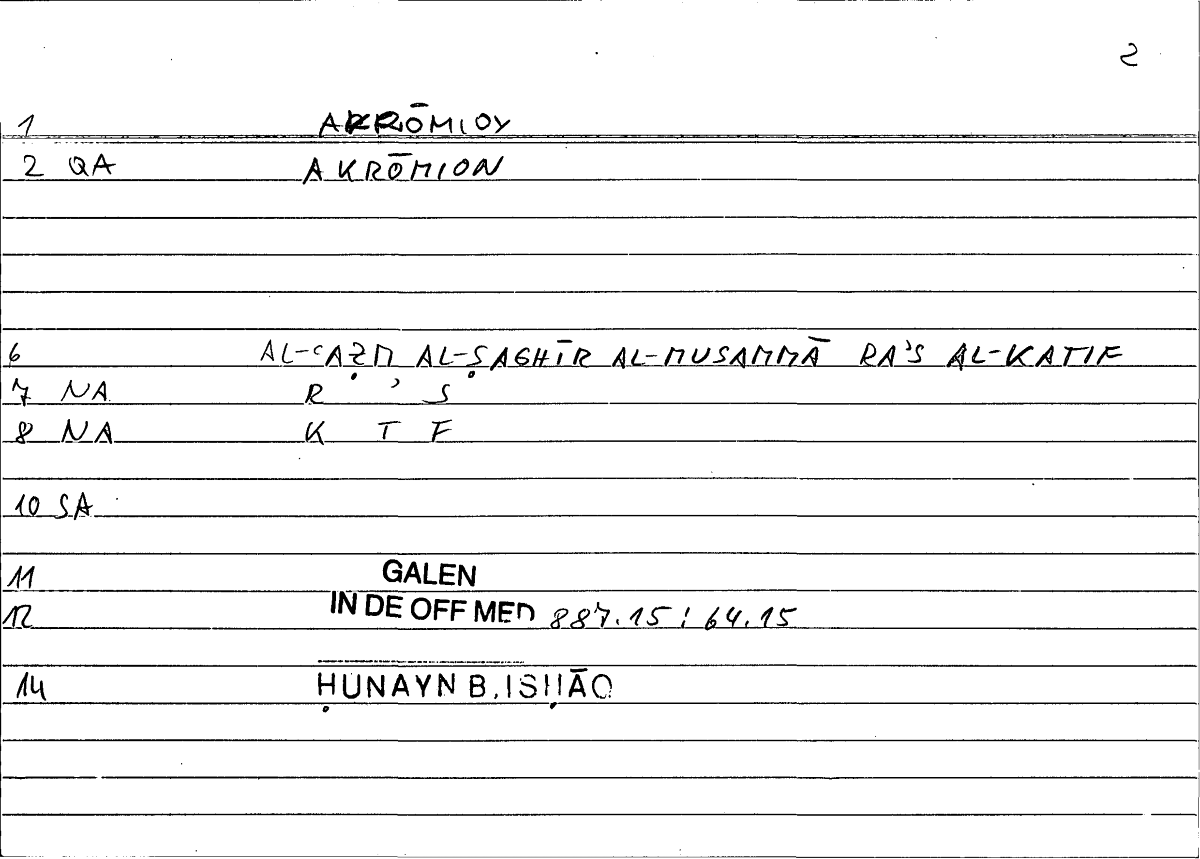 2
1 AKRŌMIOY
2 QA AKRŌMION
6 AL-ʿAẒM AL-ṢAGHĪR AL-MUSAMMĀ RAʾS AL-KATIF
7 NA R ʾ S
8 NA K T F
10 SA
11 GALEN
12 IN DE OFF MED 887.15 ; 64.15
14 ḤUNAYN B. ISḤĀQ